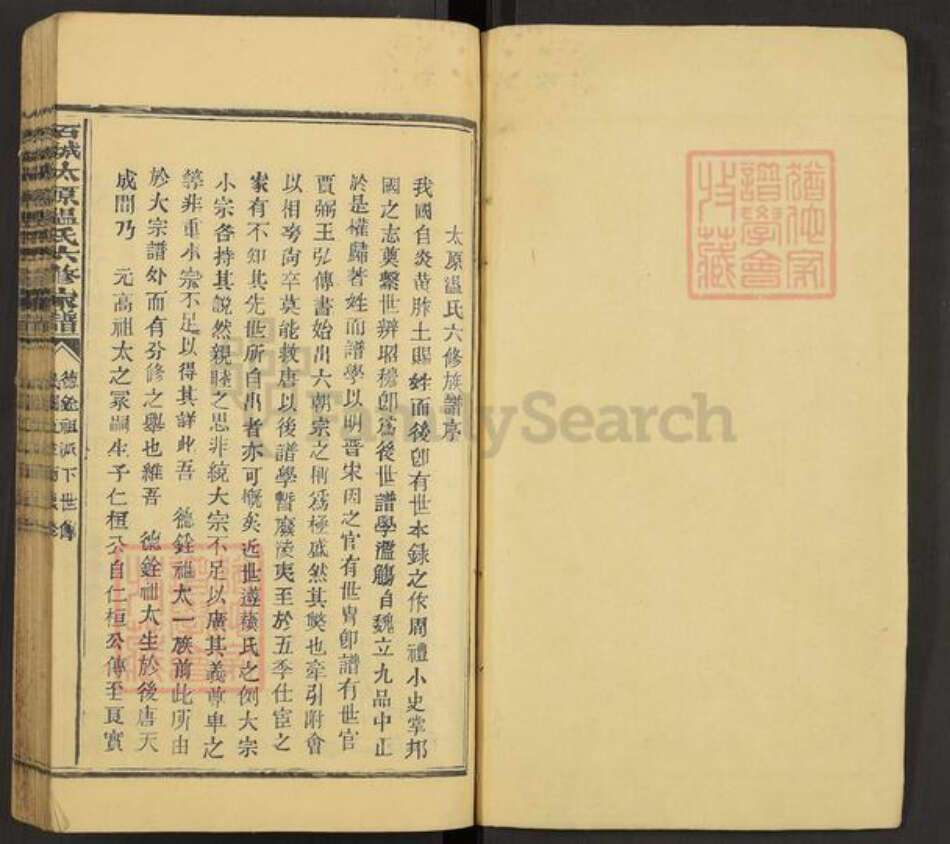 太原温氏六修族譜序
我國自炎黄胙土賜姓而後卽有世本録之作周禮小史掌邦
國之志奠繫世辨昭穆卽爲後世譜學濫觴自魏立九品中正
於是權歸著姓而譜學以明晋宋因之官有世冑卽譜有世官
賈弼王弘傳書始出六朝宗之稱爲極盛然其獘也牽引附會
以相夸尙卒莫能救唐以後譜學暫廢陵夷至於五季仕宦之
家有不知其先世所自出者亦可慨矣近世遵横氏之例大宗
小宗各持其説然親睦之思非統大宗不足以廣其義尊卑之
等非重小宗不足以得其詳此吾 德銓祖太一族前此所由
於大宗譜外而有分修之舉也維吾 德銓祖太生於後唐天
成間乃 元高祖太之冢嗣生子仁桓公自仁桓公傳至頁實
石城太原温氏六修族譜
德銓祖派下世傳
猶他家
譜學會
收藏
FamilySearch